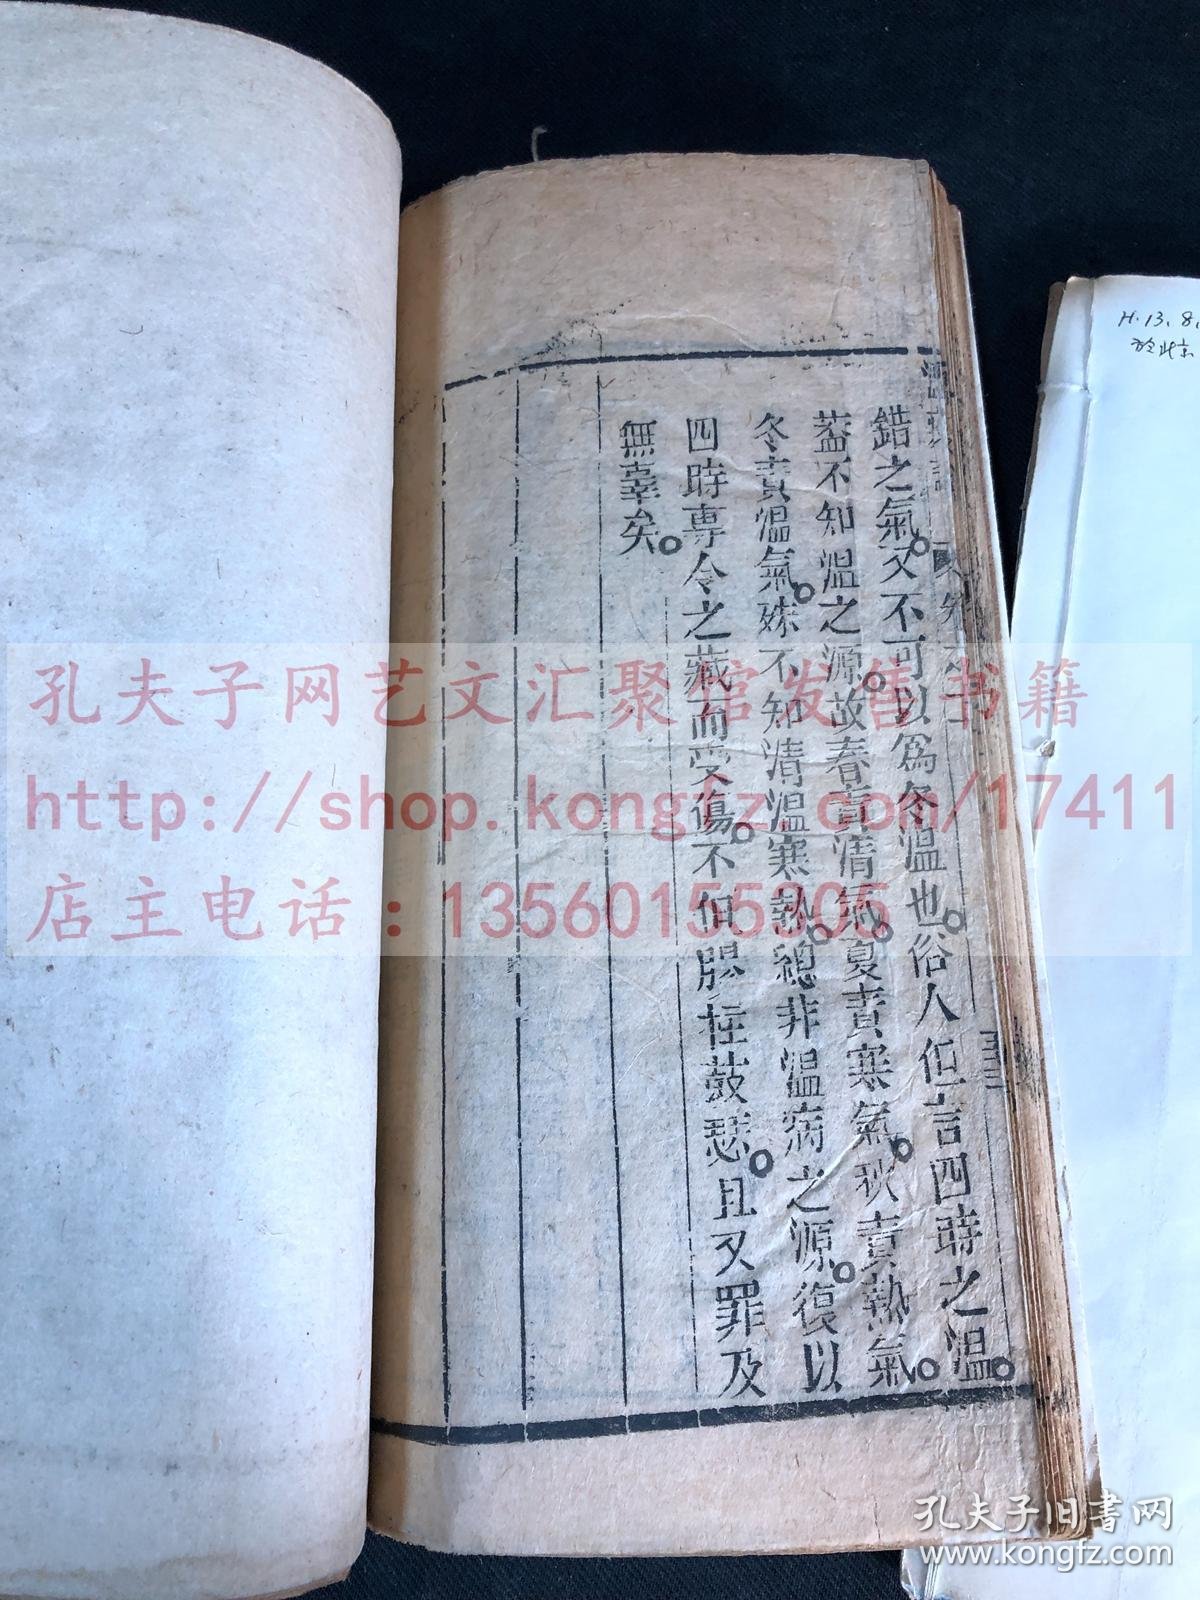 錯之氣又不可以爲冬温也俗人但言四時之温
葢不知温之源故春責清氣夏責寒氣秋責熱氣
冬責温氣殊不知清温寒熱總非温病之源復以
四時専令之藏而受傷不但膠柱鼓瑟且又罪及
無辜矣
H.13.8.
於北京
孔夫子网艺文汇聚馆发售书籍
http://shop.kongfz.com/17411
店主电话：13560155305
孔夫子旧書网
www.kongfz.com